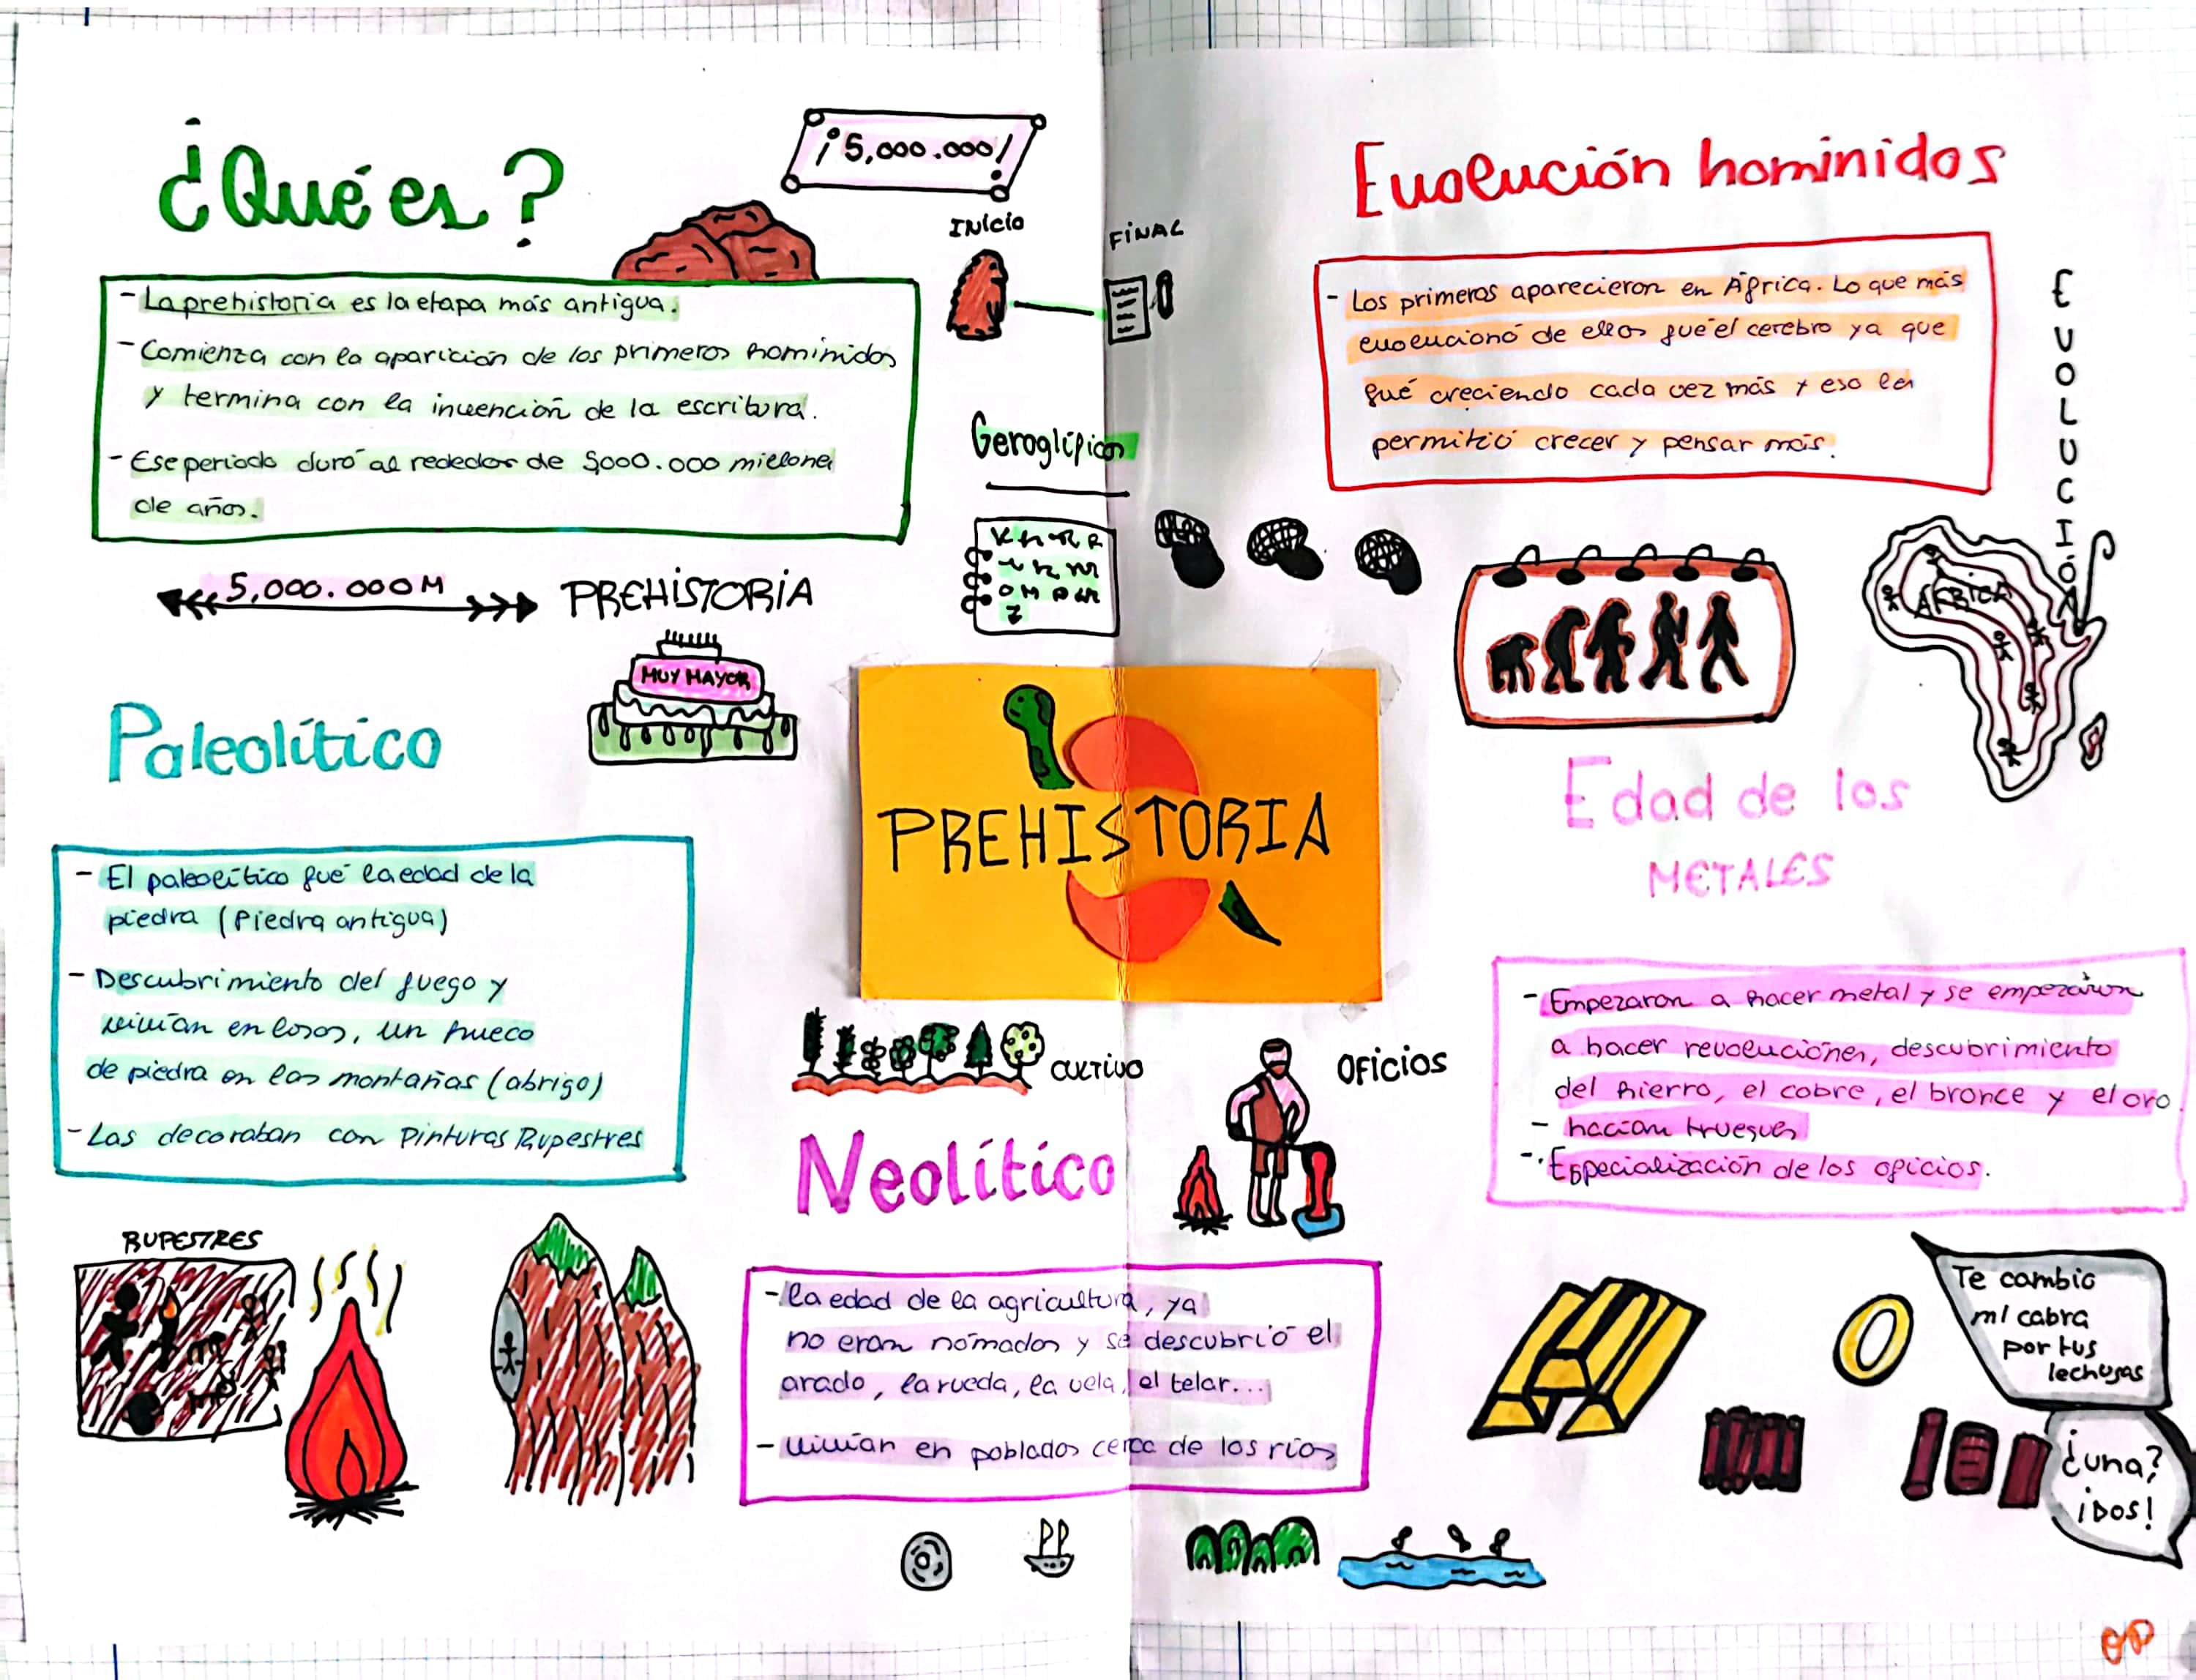 ¿Qué es?
¡5,000.000!
INICIO
FINAL
- La prehistoria es la etapa más antigua.
- Comienza con la aparición de los primeros hominidos
y termina con la invención de la escritura.
- Ese periodo duró al rededor de 5,000.000 millones
de años.
5,000.000M
PREHISTORIA
MUY MAYOR
Geroglíficos
Evolución hominidos
- Los primeros aparecieron en África. Lo que más
evolucionó de ellos fué el cerebro ya que
fué creciendo cada vez más y eso les
permitió crecer y pensar más.
EVOLUCIÓN
ÁFRICA
PREHISTORIA
Paleolítico
- El paleolítico fué la edad de la
piedra (Piedra antigua)
- Descubrimiento del fuego y
vivían en cosos, un hueco
de piedra en las montañas (abrigo)
- Las decoraban con Pinturas Rupestres
RUPESTRES
CULTIVO
OFICIOS
Neolítico
- la edad de la agricultura, ya
no eran nómados y se descubrió el
arado, la rueda, la vela, el telar...
- vivían en poblados cerca de los ríos
Edad de los
METALES
- Empezaron a hacer metal y se empezaron
a hacer revoluciones, descubrimiento
del hierro, el cobre, el bronce y el oro
- hacían trueques
- Especialización de los oficios.
Te cambio
mi cabra
por tus
lechugas
¿una?
¡DOS!